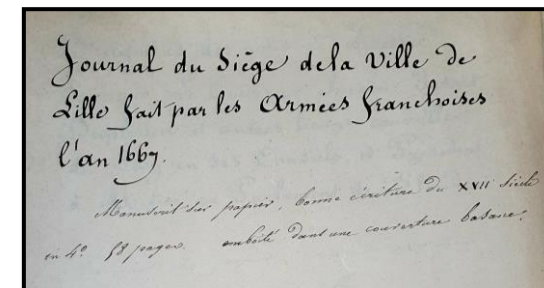 Journal du Siège dela Ville De
Lille fait par les Armées franchoises
l'an 1667.
Manuscrit sur papier, bonne écriture du XVII Siècle
in 4° 58 pages. emboîté dans une couverture basane.